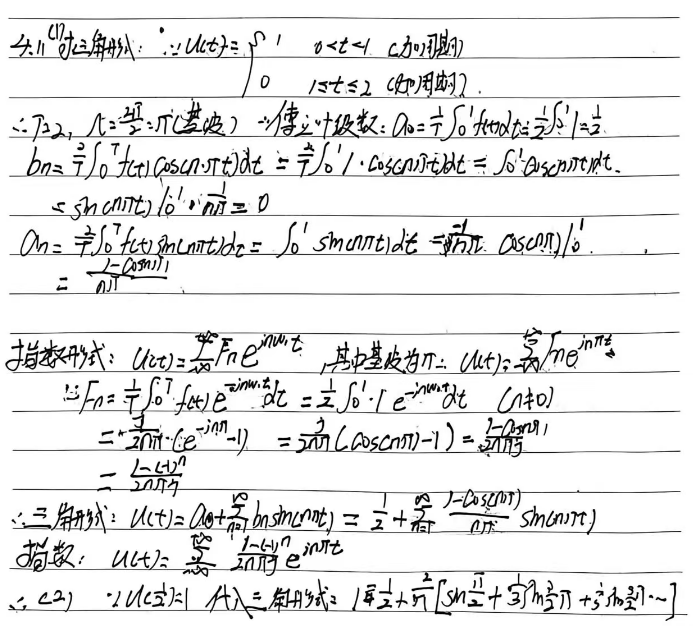 4.11 (1) 三角形式: ∵ u(t) = { 1 0<t<1 (加周期)
0 1≤t≤2 (加周期).
∴ T=2, Λ=2π/2=π(基波) ∴傅立叶级数: a₀=1/T∫₀¹f(t)dt=1/2∫₀¹1=1/2
bn = 2/T∫₀ᵀ f(t) cos(n·πt)dt = 2/T∫₀¹ 1·cos(nπt)dt = ∫₀¹ cos(nπt)dt.
= sin(nπt)|₀¹ · 1/nπ = 0
an = 2/T∫₀ᵀ f(t) sin(nπt)dt = ∫₀¹ sin(nπt)dt = -1/nπ cos(nπ)|₀¹.
= 1-cos(nπ)/nπ
指数形式: u(t) = Σ Fn e^{jnω₁t} ,其中基波为π∴ u(t) = Σ Fn e^{jnπt}
∵ Fn = 1/T∫₀ᵀ f(t) e^{-jnω₁t}dt = 1/2∫₀¹ ·1 e^{-jnω₁t}dt (n≠0)
= j/2nπ · (e^{-jnπ}-1) = j/2nπ (cos(nπ)-1) = 1-cos(nπ)/2nπj
= 1-(-1)ⁿ/2nπj
∴ 三角形式: u(t) = a₀+Σ bn sin(nπt) = 1/2 + Σ 1-cos(nπ)/nπ sin(nπt)
指数: u(t) = Σ 1-(-1)ⁿ/2nπj e^{jnπt}
∴ (2) ∵ u(1/2)=1 代入三角形式: 1=1/2+2/π[sin π/2 + 1/3 sin 3/2 π +